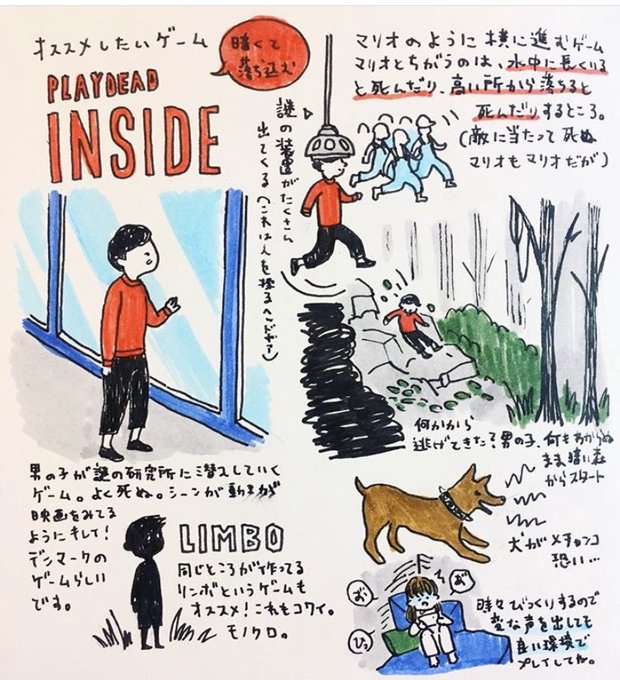 オススメしたいゲーム
PLAYDEAD
INSIDE
暗くて
落ち込む
謎の装置がたくさん
出てくる(これは人を操る
マリオのように横に進むゲーム
マリオとちがうのは、水中に長くいる
と死んだり、高い所から落ちると
死んだりするところ。
(敵に当たって死ぬ
マリオもマリオだが)
何かから
逃げてきた?男の子、何もわからぬ
まま暗い森
からスタート
男の子が謎の研究所に潜入していく
ゲーム。よく死ぬ。シーンが動きが
映画をみてる
ようにキレイ!
デンマークの
ゲームらしい
です。
LIMBO
同じところが作ってる
リンボというゲームも
オススメ!これもコワイ。
モノクロ。
犬がメチャンコ
恐い…
お
お
ひっ
時々びっくりするので
変な声を出しても
良い環境で
プレイしてね。